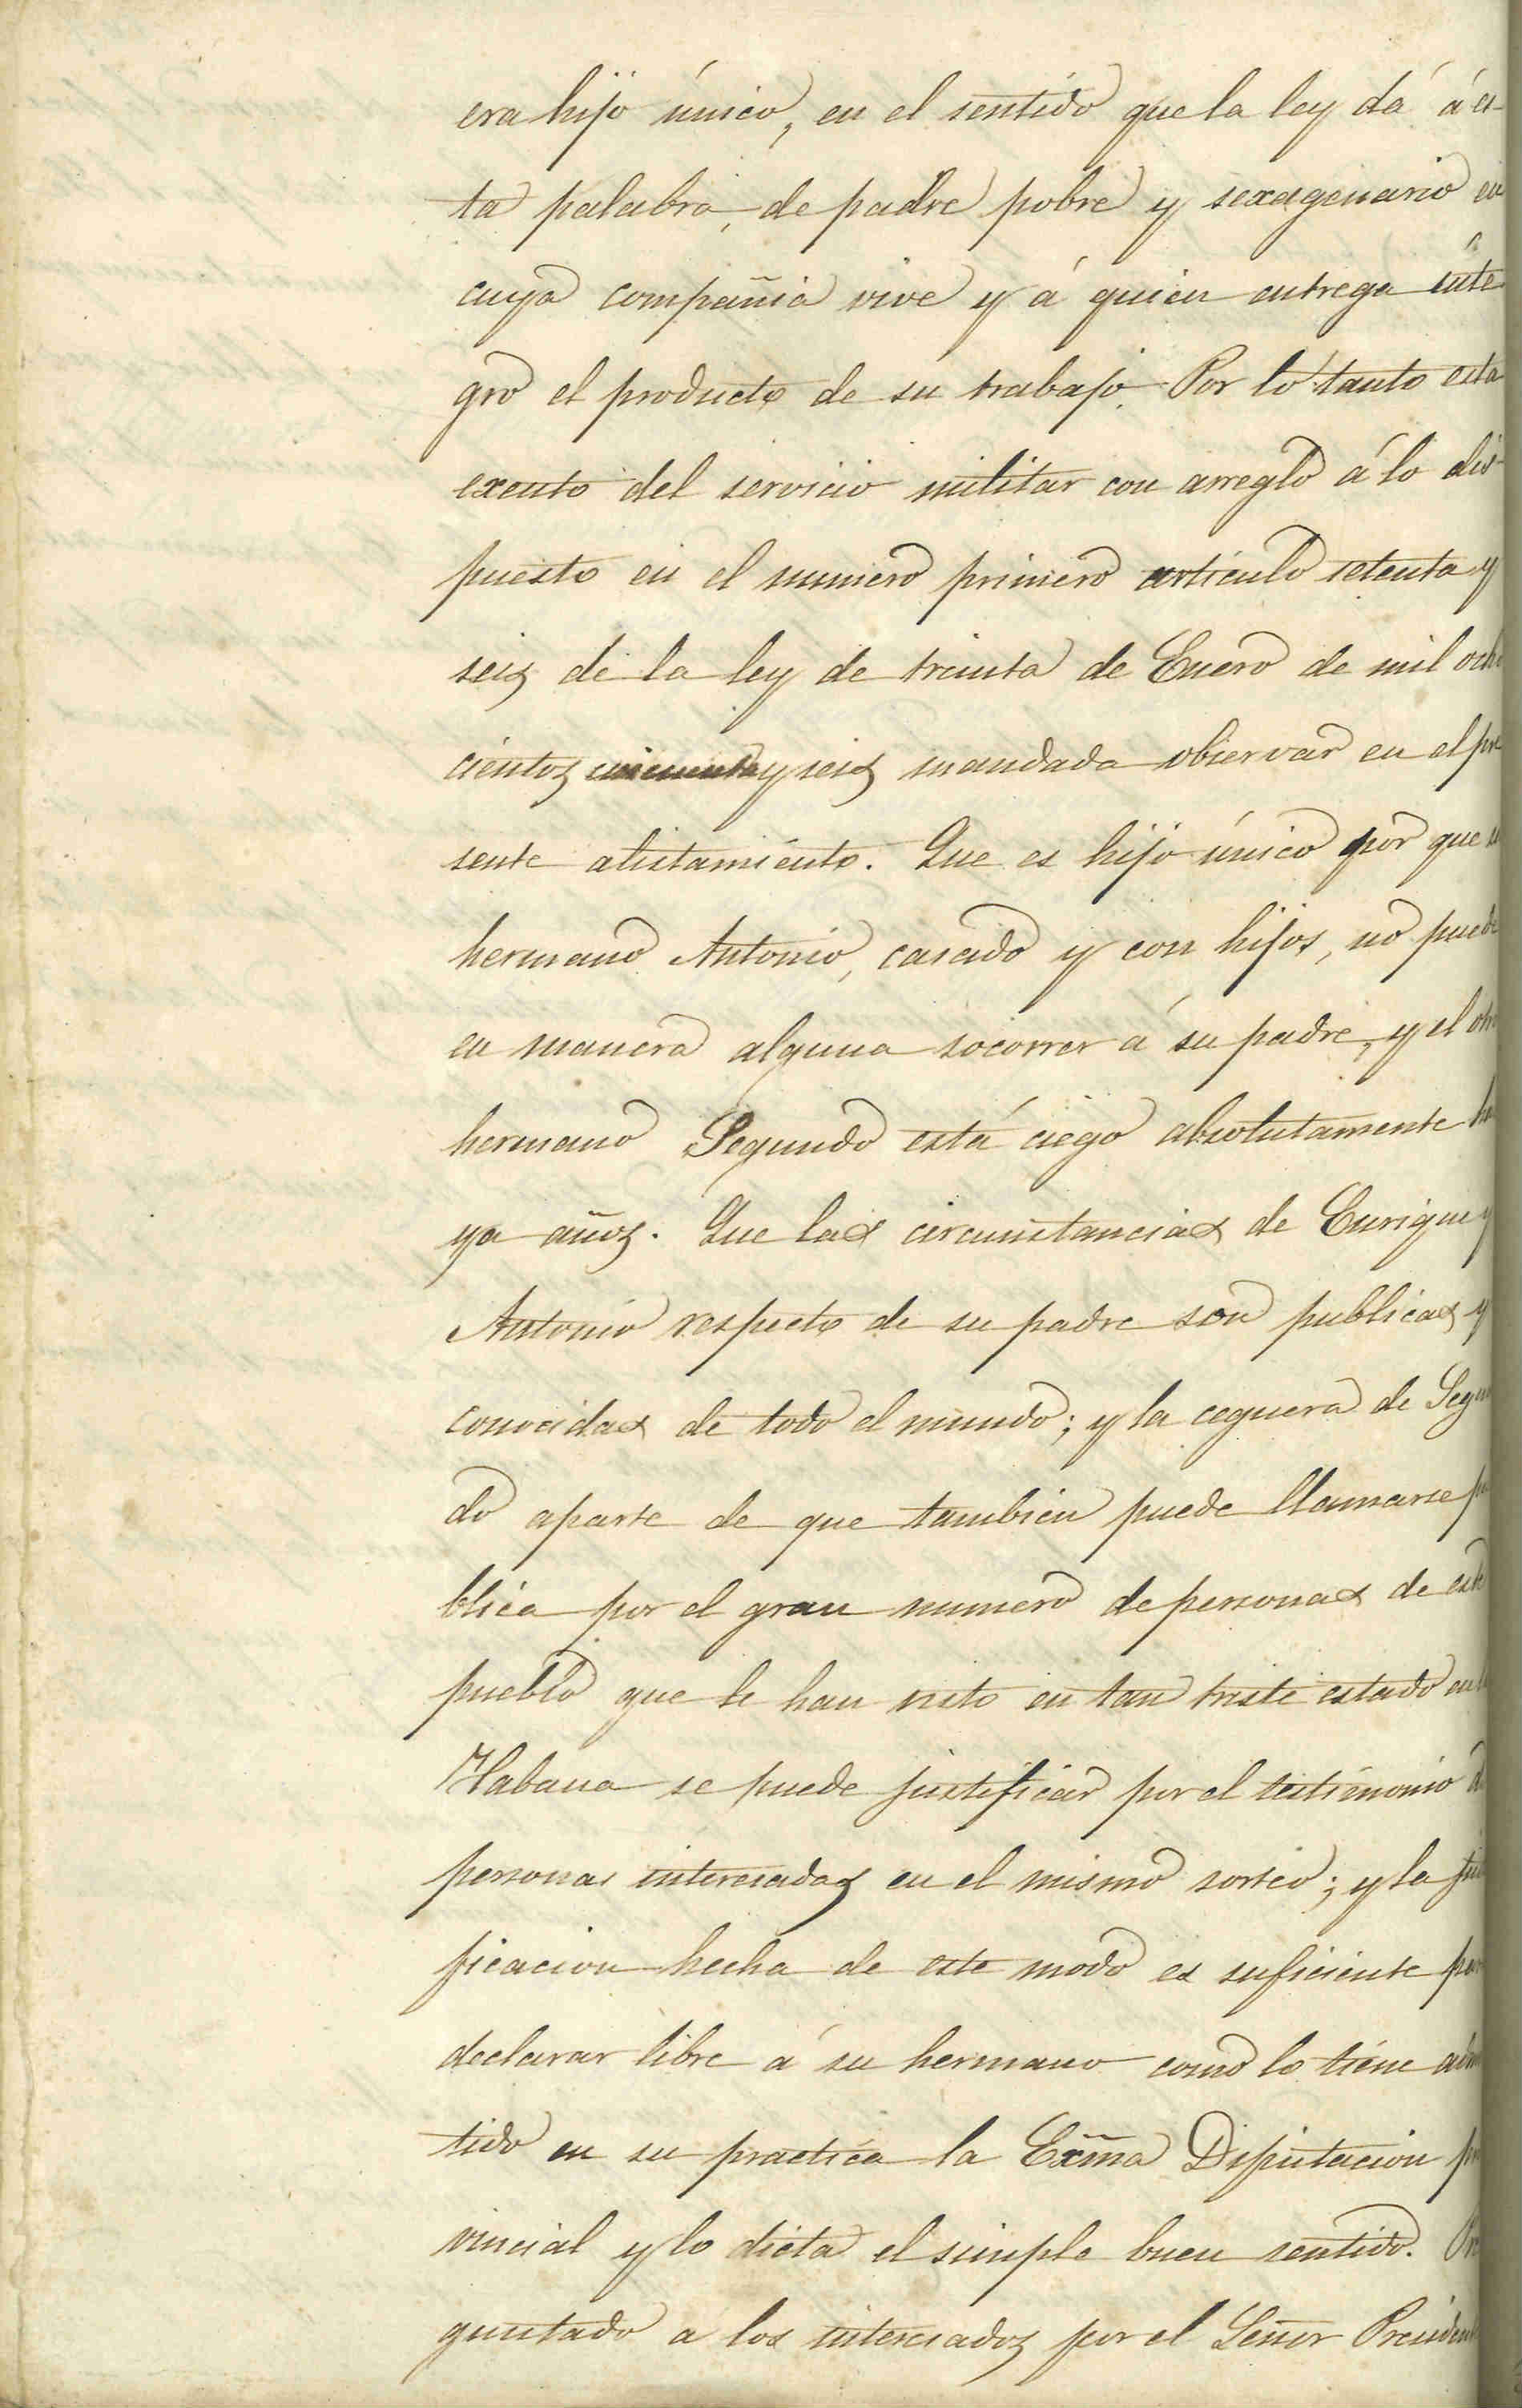 era hijo único, en el sentido que la ley dá á es-
ta palabra, de padre pobre y sexagenario en
cuya compañia vive y á quien entrega ínte
gro el producto de su trabajo. Por lo tanto esta
exento del servicio militar con arreglo á lo dis-
puesto en el numero primero artículo setenta y
seis de la ley de treinta de Enero de mil ocho
cientos cincuenta y seis mandada observar en el pre
sente alistamiento. Que es hijo único por que su
hermano Antonio, casado y con hijos, no puede
en manera alguna socorrer á su padre, y el otro
hermano Segundo está ciego absolutamente ha
ya años. Que las circunstancias de Enrique y
Antonio respecto de su padre son publicas y
conocidas de todo el mundo; y la ceguera de Segun
do aparte de que tambien puede llamarse pu
blica por el gran numero de personas de este
pueblo que le han visto en tan triste estado en la
Habana se puede justificar por el testimonio de
personas interesadas en el mismo sorteo; y la justi
ficacion hecha de este modo es suficiente para
declarar libre á su hermano como lo tiene admi
tido en su practica la Exma Diputacion pro
vincial y lo dicta el simple buen sentido. Pre
guntado a los interesados por el Señor Presidente